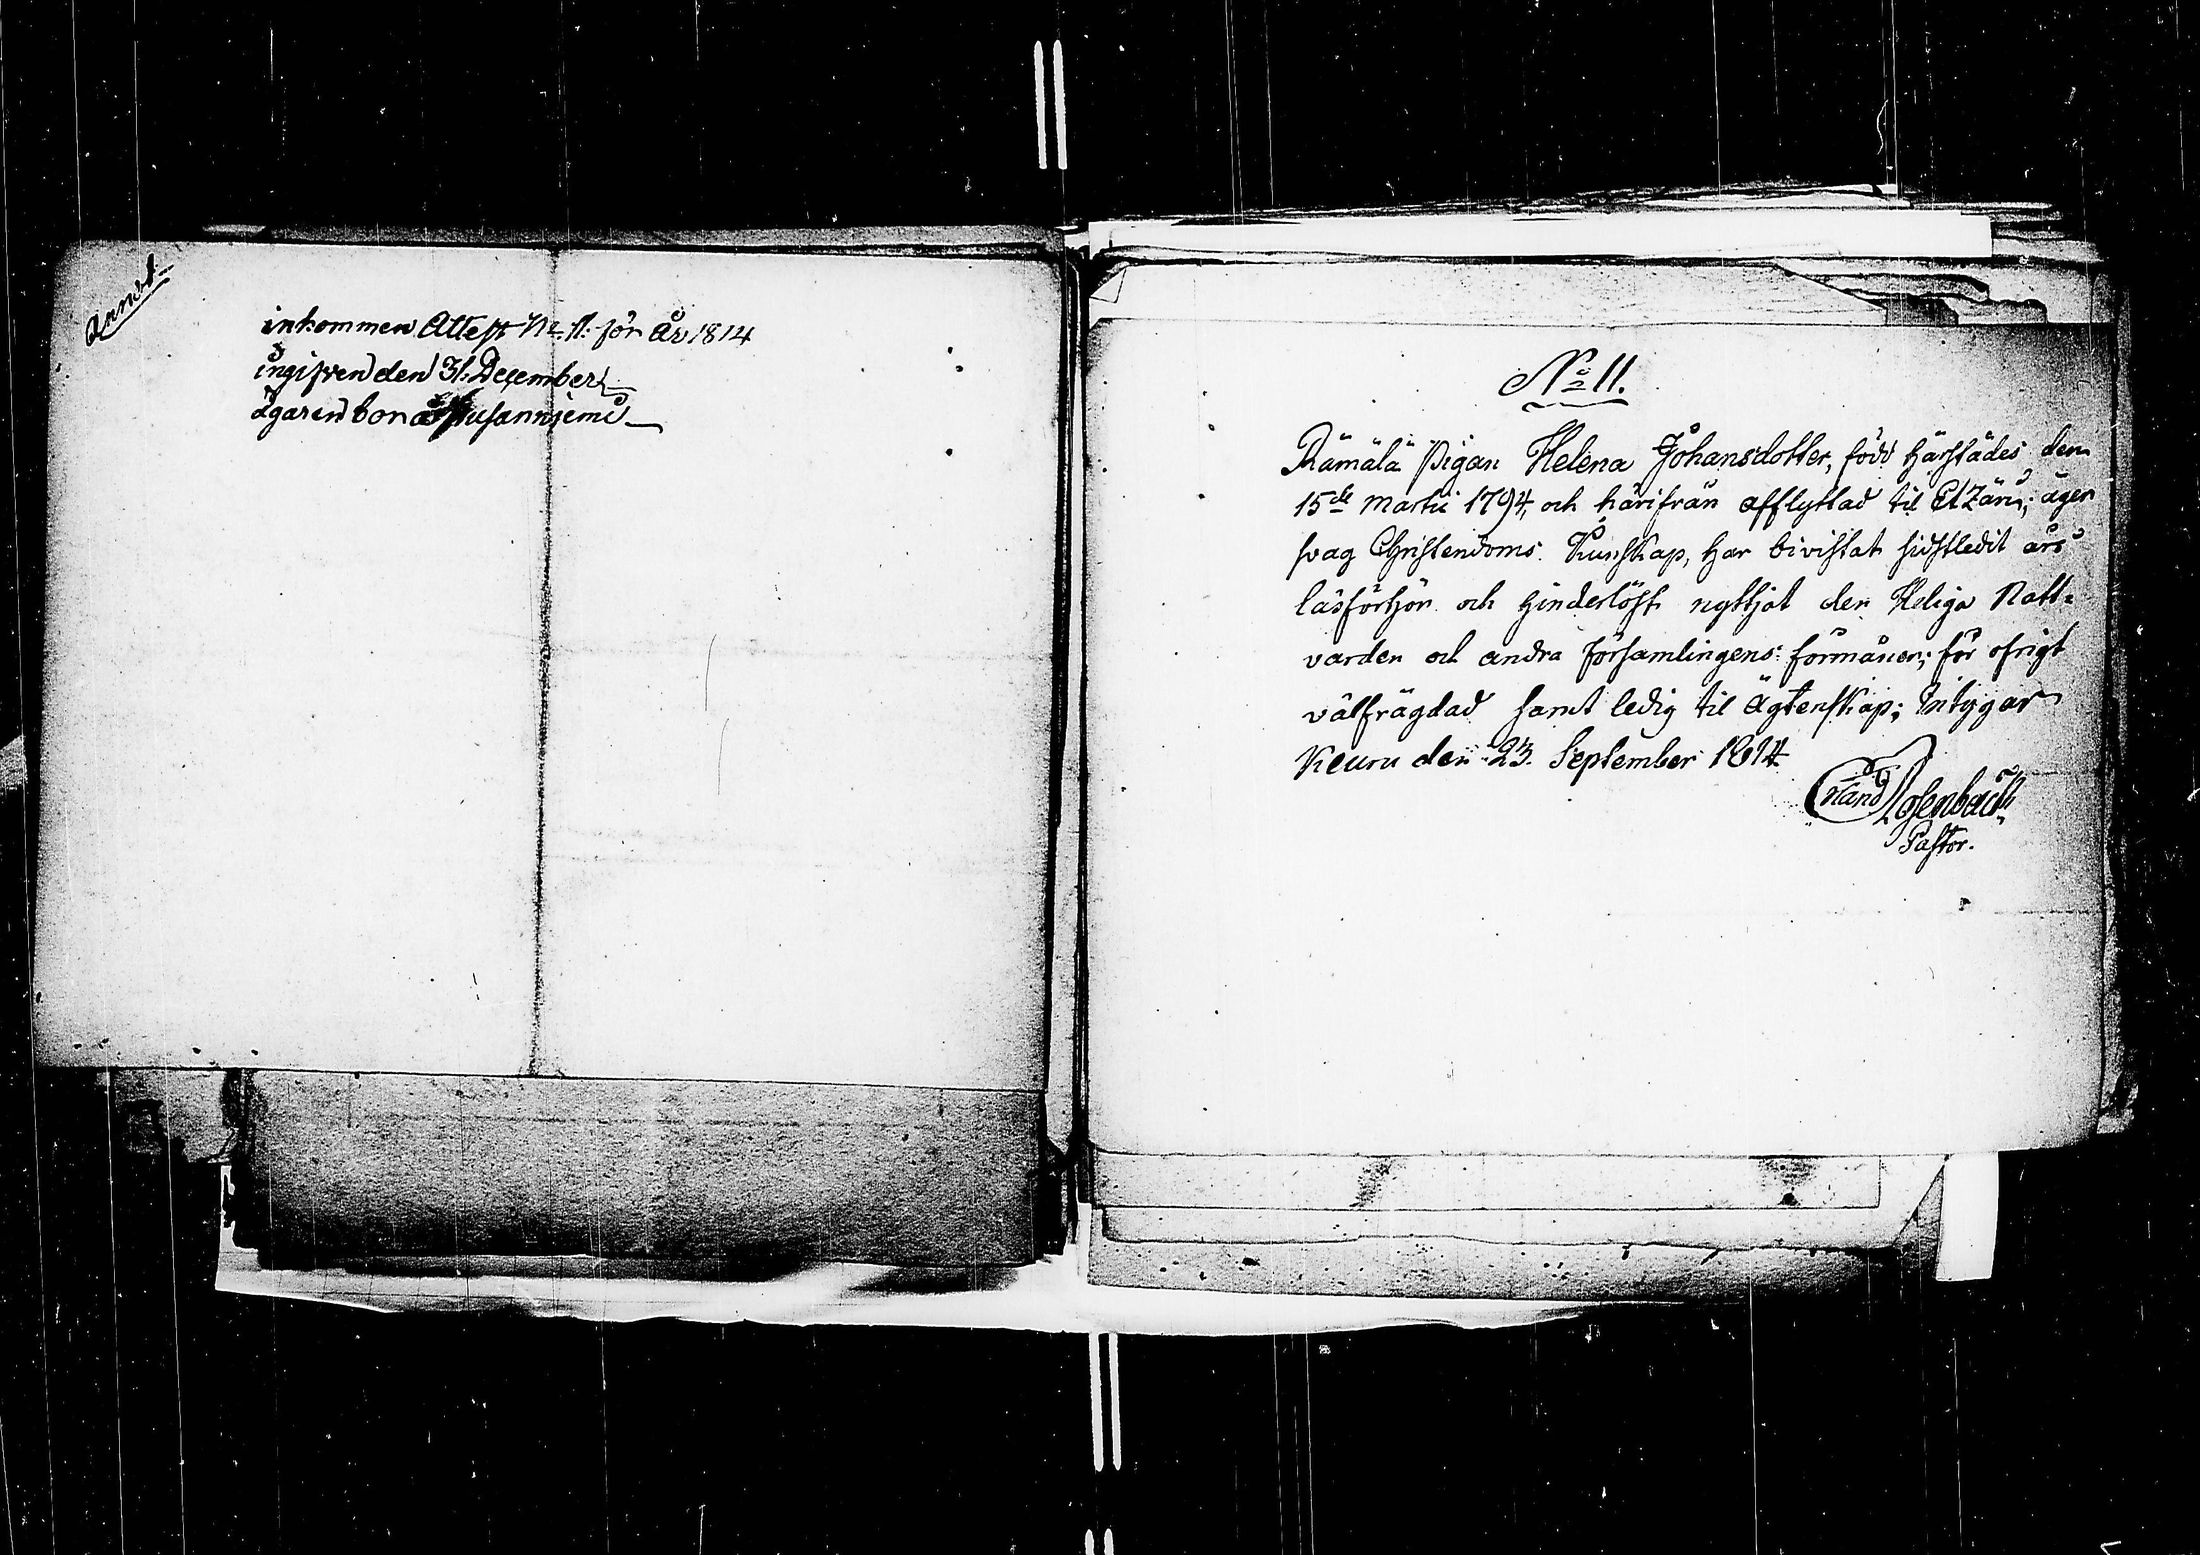 Annot
inkommen Attest No. 11. för År 1814
ingifven den 31. December
ägaren bor å
No 11.
Rämälä Pigan Helena Johansdotter, född härstädes den
15de Martii 1794, och härifrån afflyttad til Etzäri; äger
svag Christendoms Kunskap, har bivistat sidstledit års
läsförhör och hinderlöst nyttjat den Heliga Natt-
varden och andra församlingens förmåner; för ofrigt
välfrägdad samt ledig til Ägtenskap; Intygar
Keuru den 23. September 1814
Rosenback
Pastor.